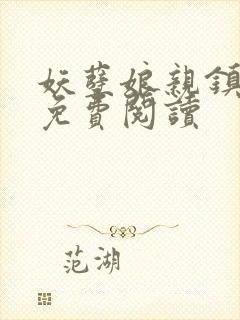 妖孽娘親鎮
免費閱讀
范湖